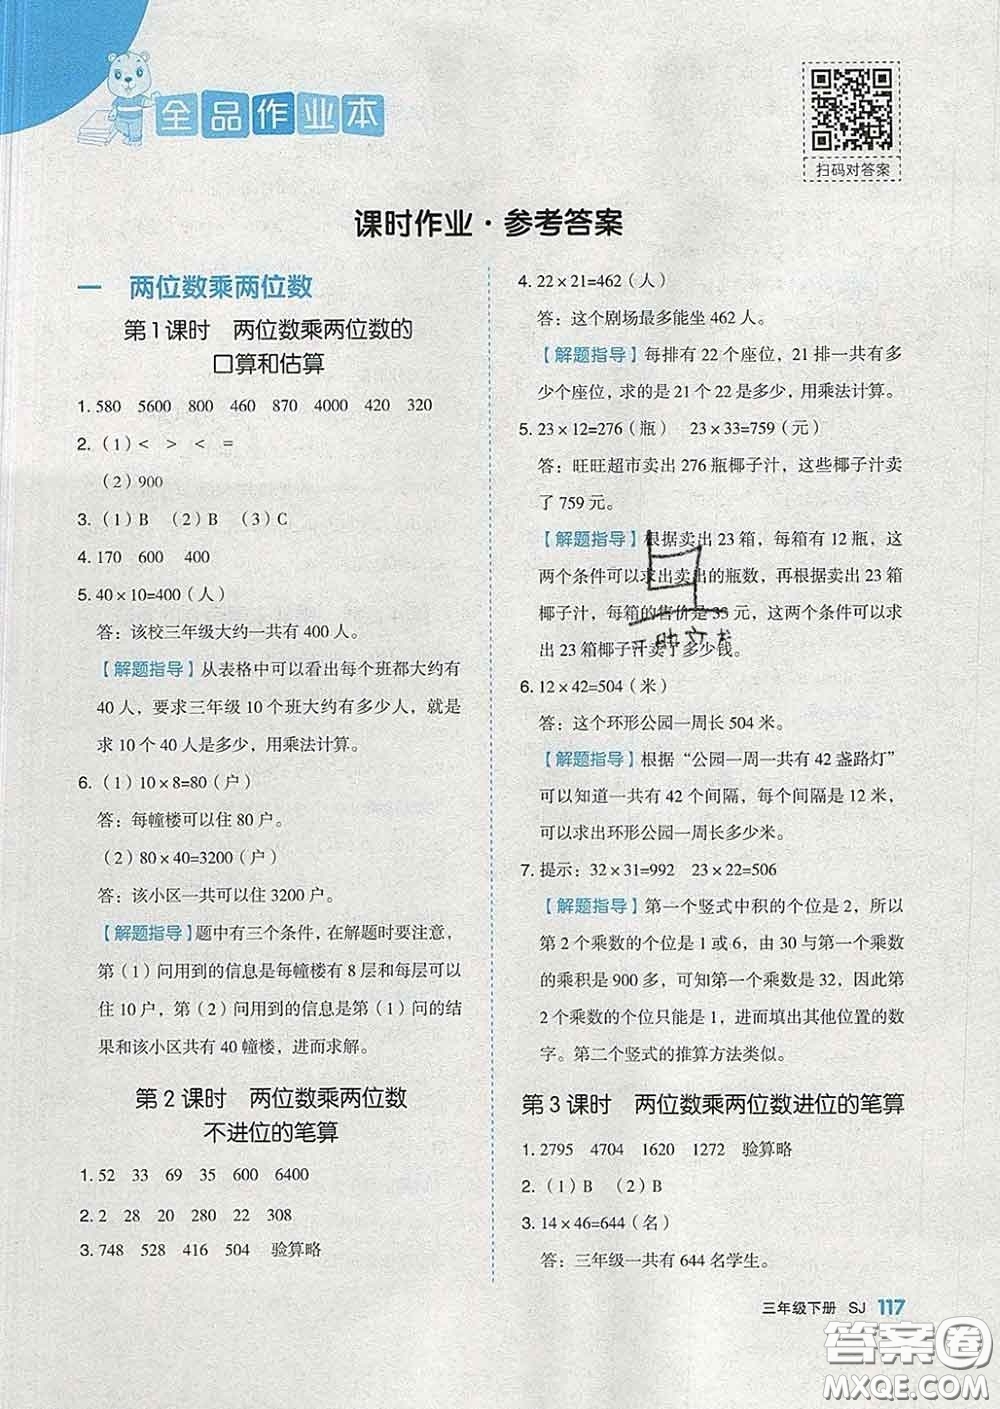 全品作业本
扫码对答案
课时作业·参考答案
一 两位数乘两位数
第1课时 两位数乘两位数的
口算和估算
1. 580 5600 800 460 870 4000 420 320
2.（1）< > < =
（2）900
3.（1）B （2）B （3）C
4. 170 600 400
5. 40×10=400（人）
答：该校三年级大约一共有 400 人。
【解题指导】从表格中可以看出每个班都大约有
40 人，要求三年级 10 个班大约有多少人，就是
求 10 个 40 人是多少，用乘法计算。
6.（1）10×8=80（户）
答：每幢楼可以住 80 户。
（2）80×40=3200（户）
答：该小区一共可以住 3200 户。
【解题指导】题中有三个条件，在解题时要注意，
第（1）问用到的信息是每幢楼有 8 层和每层可以
住 10 户，第（2）问用到的信息是第（1）问的结
果和该小区共有 40 幢楼，进而求解。
第2课时 两位数乘两位数
不进位的笔算
1. 52 33 69 35 600 6400
2. 2 28 20 280 22 308
3. 748 528 416 504 验算略
4. 22×21=462（人）
答：这个剧场最多能坐 462 人。
【解题指导】每排有 22 个座位，21 排一共有多
少个座位，求的是 21 个 22 是多少，用乘法计算。
5. 23×12=276（瓶） 23×33=759（元）
答：旺旺超市卖出 276 瓶椰子汁，这些椰子汁卖
了 759 元。
【解题指导】根据卖出 23 箱，每箱有 12 瓶，这
两个条件可以求出卖出的瓶数，再根据卖出 23 箱
椰子汁，每箱的售价是 33 元，这两个条件可以求
出 23 箱椰子汁卖了多少钱。
6. 12×42=504（米）
答：这个环形公园一周长 504 米。
【解题指导】根据“公园一周一共有 42 盏路灯”
可以知道一共有 42 个间隔，每个间隔是 12 米，
可以求出环形公园一周长多少米。
7. 提示：32×31=992 23×22=506
【解题指导】第一个竖式中积的个位是 2，所以
第 2 个乘数的个位是 1 或 6，由 30 与第一个乘数
的乘积是 900 多，可知第一个乘数是 32，因此第
2 个乘数的个位只能是 1，进而填出其他位置的数
字。第二个竖式的推算方法类似。
第3课时 两位数乘两位数进位的笔算
1. 2795 4704 1620 1272 验算略
2.（1）B （2）B
3. 14×46=644（名）
答：三年级一共有 644 名学生。
三年级下册 SJ 117
答案圈
MXQE.COM